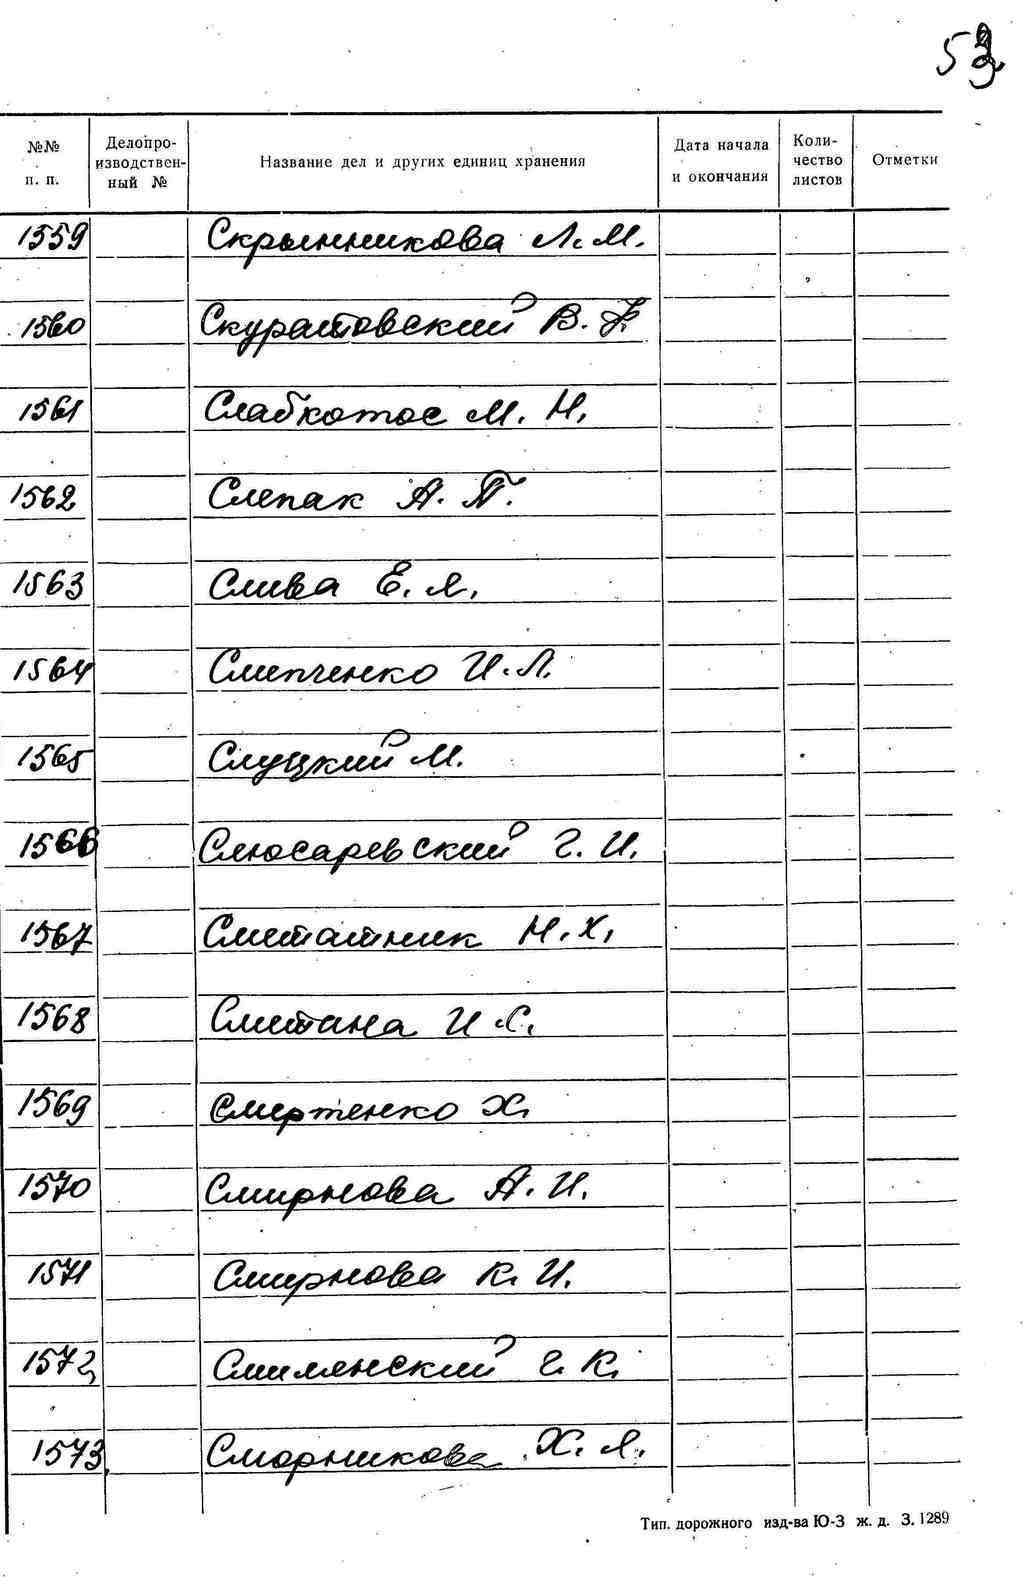 53
№№ п. п. Делопроизводствен- ный № Название дел и других единиц хранения Дата начала и окончания Коли- чество листов Отметки
1559 Скрынникова Л. М.
1560 Скуратовский В. Ф.
1561 Слабкотос М. Н.
1562 Слепак А. П.
1563 Слива Е. Я.
1564 Слепченко И. Л.
1565 Слуцкий М.
1566 Слюсаревский Г. И.
1567 Сметатник Н. Х.
1568 Сметана И. С.
1569 Смертенко Х.
1570 Смирнова А. И.
1571 Смирнова К. И.
1572 Смилянский Г. К.
1573 Сморникова Х. Я.
Тип. дорожного изд-ва Ю-З ж. д. З. 1289